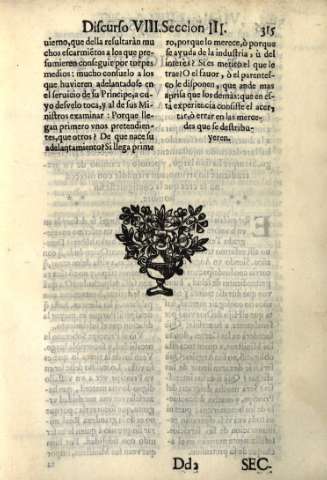 Discurso VIII. Seccion III. 315
uierno, que della resultaràn mu
chos escarmiẽtos a los que pre-
sumieren conseguir por torpes
medios: mucho consuelo a los
que huvieren adelantadose en
el seruicio de su Principe, a cu
yo desvelo toca, y al de sus Mi-
nistros examinar: Porque lle-
gan primero vnos pretendien-
tes, que otros? De que nace su
adelantamiento? Si llega prime
ro, porque lo merece, ò porque
se ayuda de la industria, ò del
interès? Si es merito el que le
trae? O el fauor, ò el parentes-
co le disponen, que ande mas
apriessa que los demàs: que en es-
ta experiencia consiste el acer,
tar, ò errar en las merce-
des que se destribu-
yeren.
Dd2 SEC-